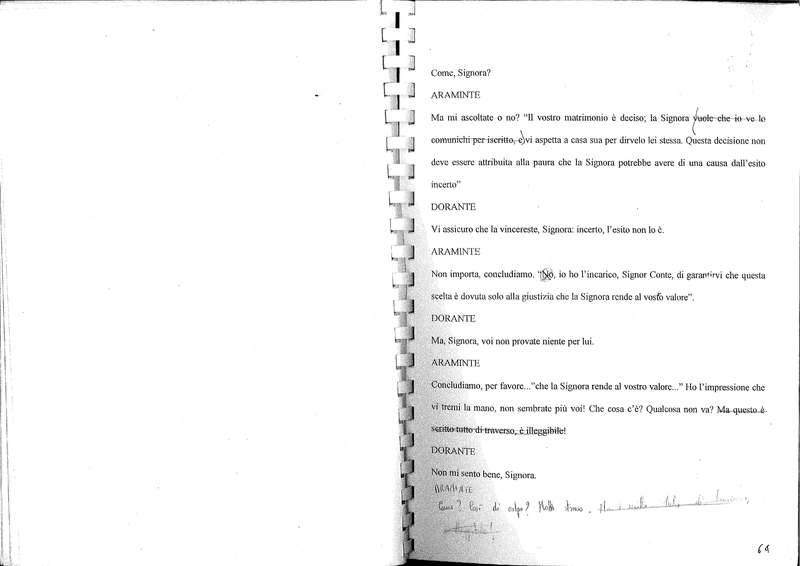 Come, Signora?
ARAMINTE
Ma mi ascoltate o no? “Il vostro matrimonio è deciso; la Signora vuole che io ve lo
comunichi per iscritto, e vi aspetta a casa sua per dirvelo lei stessa. Questa decisione non
deve essere attribuita alla paura che la Signora potrebbe avere di una causa dall’esito
incerto”
DORANTE
Vi assicuro che la vincereste, Signora: incerto, l’esito non lo è.
ARAMINTE
Non importa, concludiamo. “No, io ho l’incarico, Signor Conte, di garantirvi che questa
scelta è dovuta solo alla giustizia che la Signora rende al vostro valore”.
DORANTE
Ma, Signora, voi non provate niente per lui.
ARAMINTE
Concludiamo, per favore...”che la Signora rende al vostro valore...” Ho l’impressione che
vi tremi la mano, non sembrate più voi! Che cosa c’è? Qualcosa non va? Ma questo è
scritto tutto di traverso, è illeggibile!
DORANTE
Non mi sento bene, Signora.
ARAMINTE
Come? Così di colpo? Molto strano.
illeggibile!
64